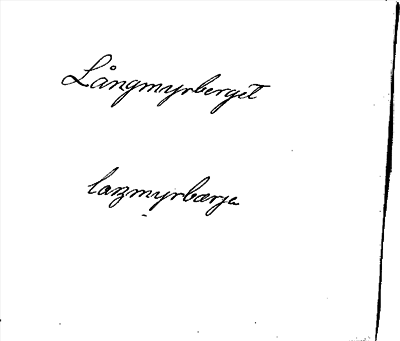 Långmyrberget
laŋmyrbærje